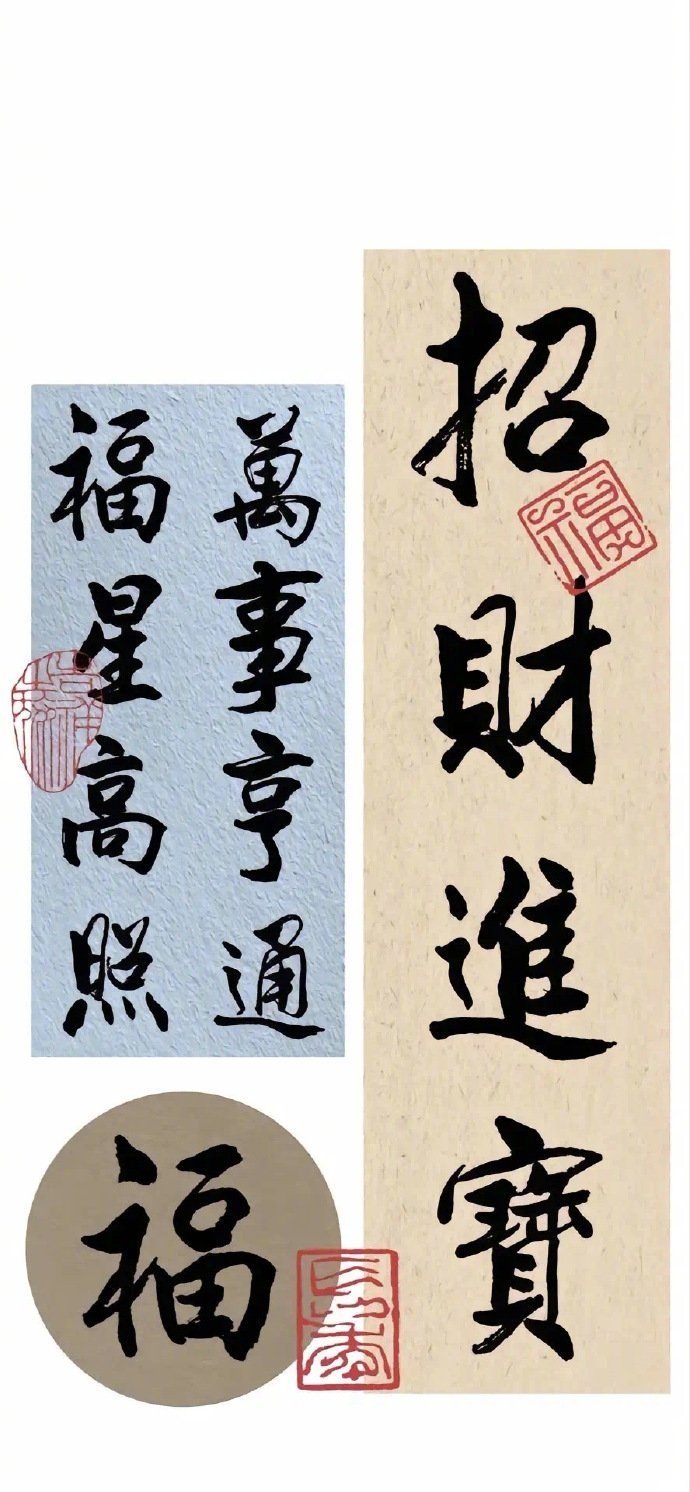 招財進寶
萬事亨通
福星高照
福
福